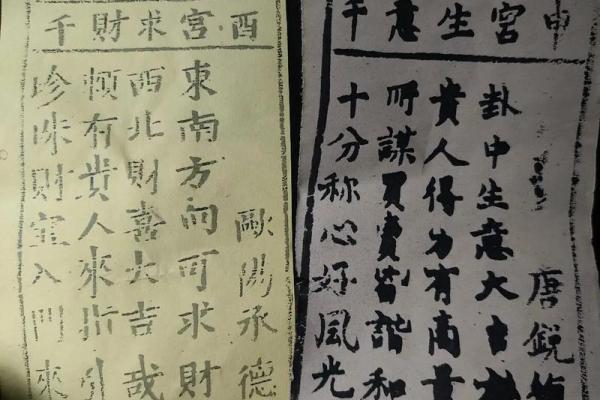 申宮生意千
唐銳
卦中生意大吉
貴人得力有商量
所謀買賣皆諧和
十分称心好風光
酉宮求財千
歐陽承德
東南方向可求財
西北財喜大吉哉
頓有貴人來指引
珍味財宝入門來